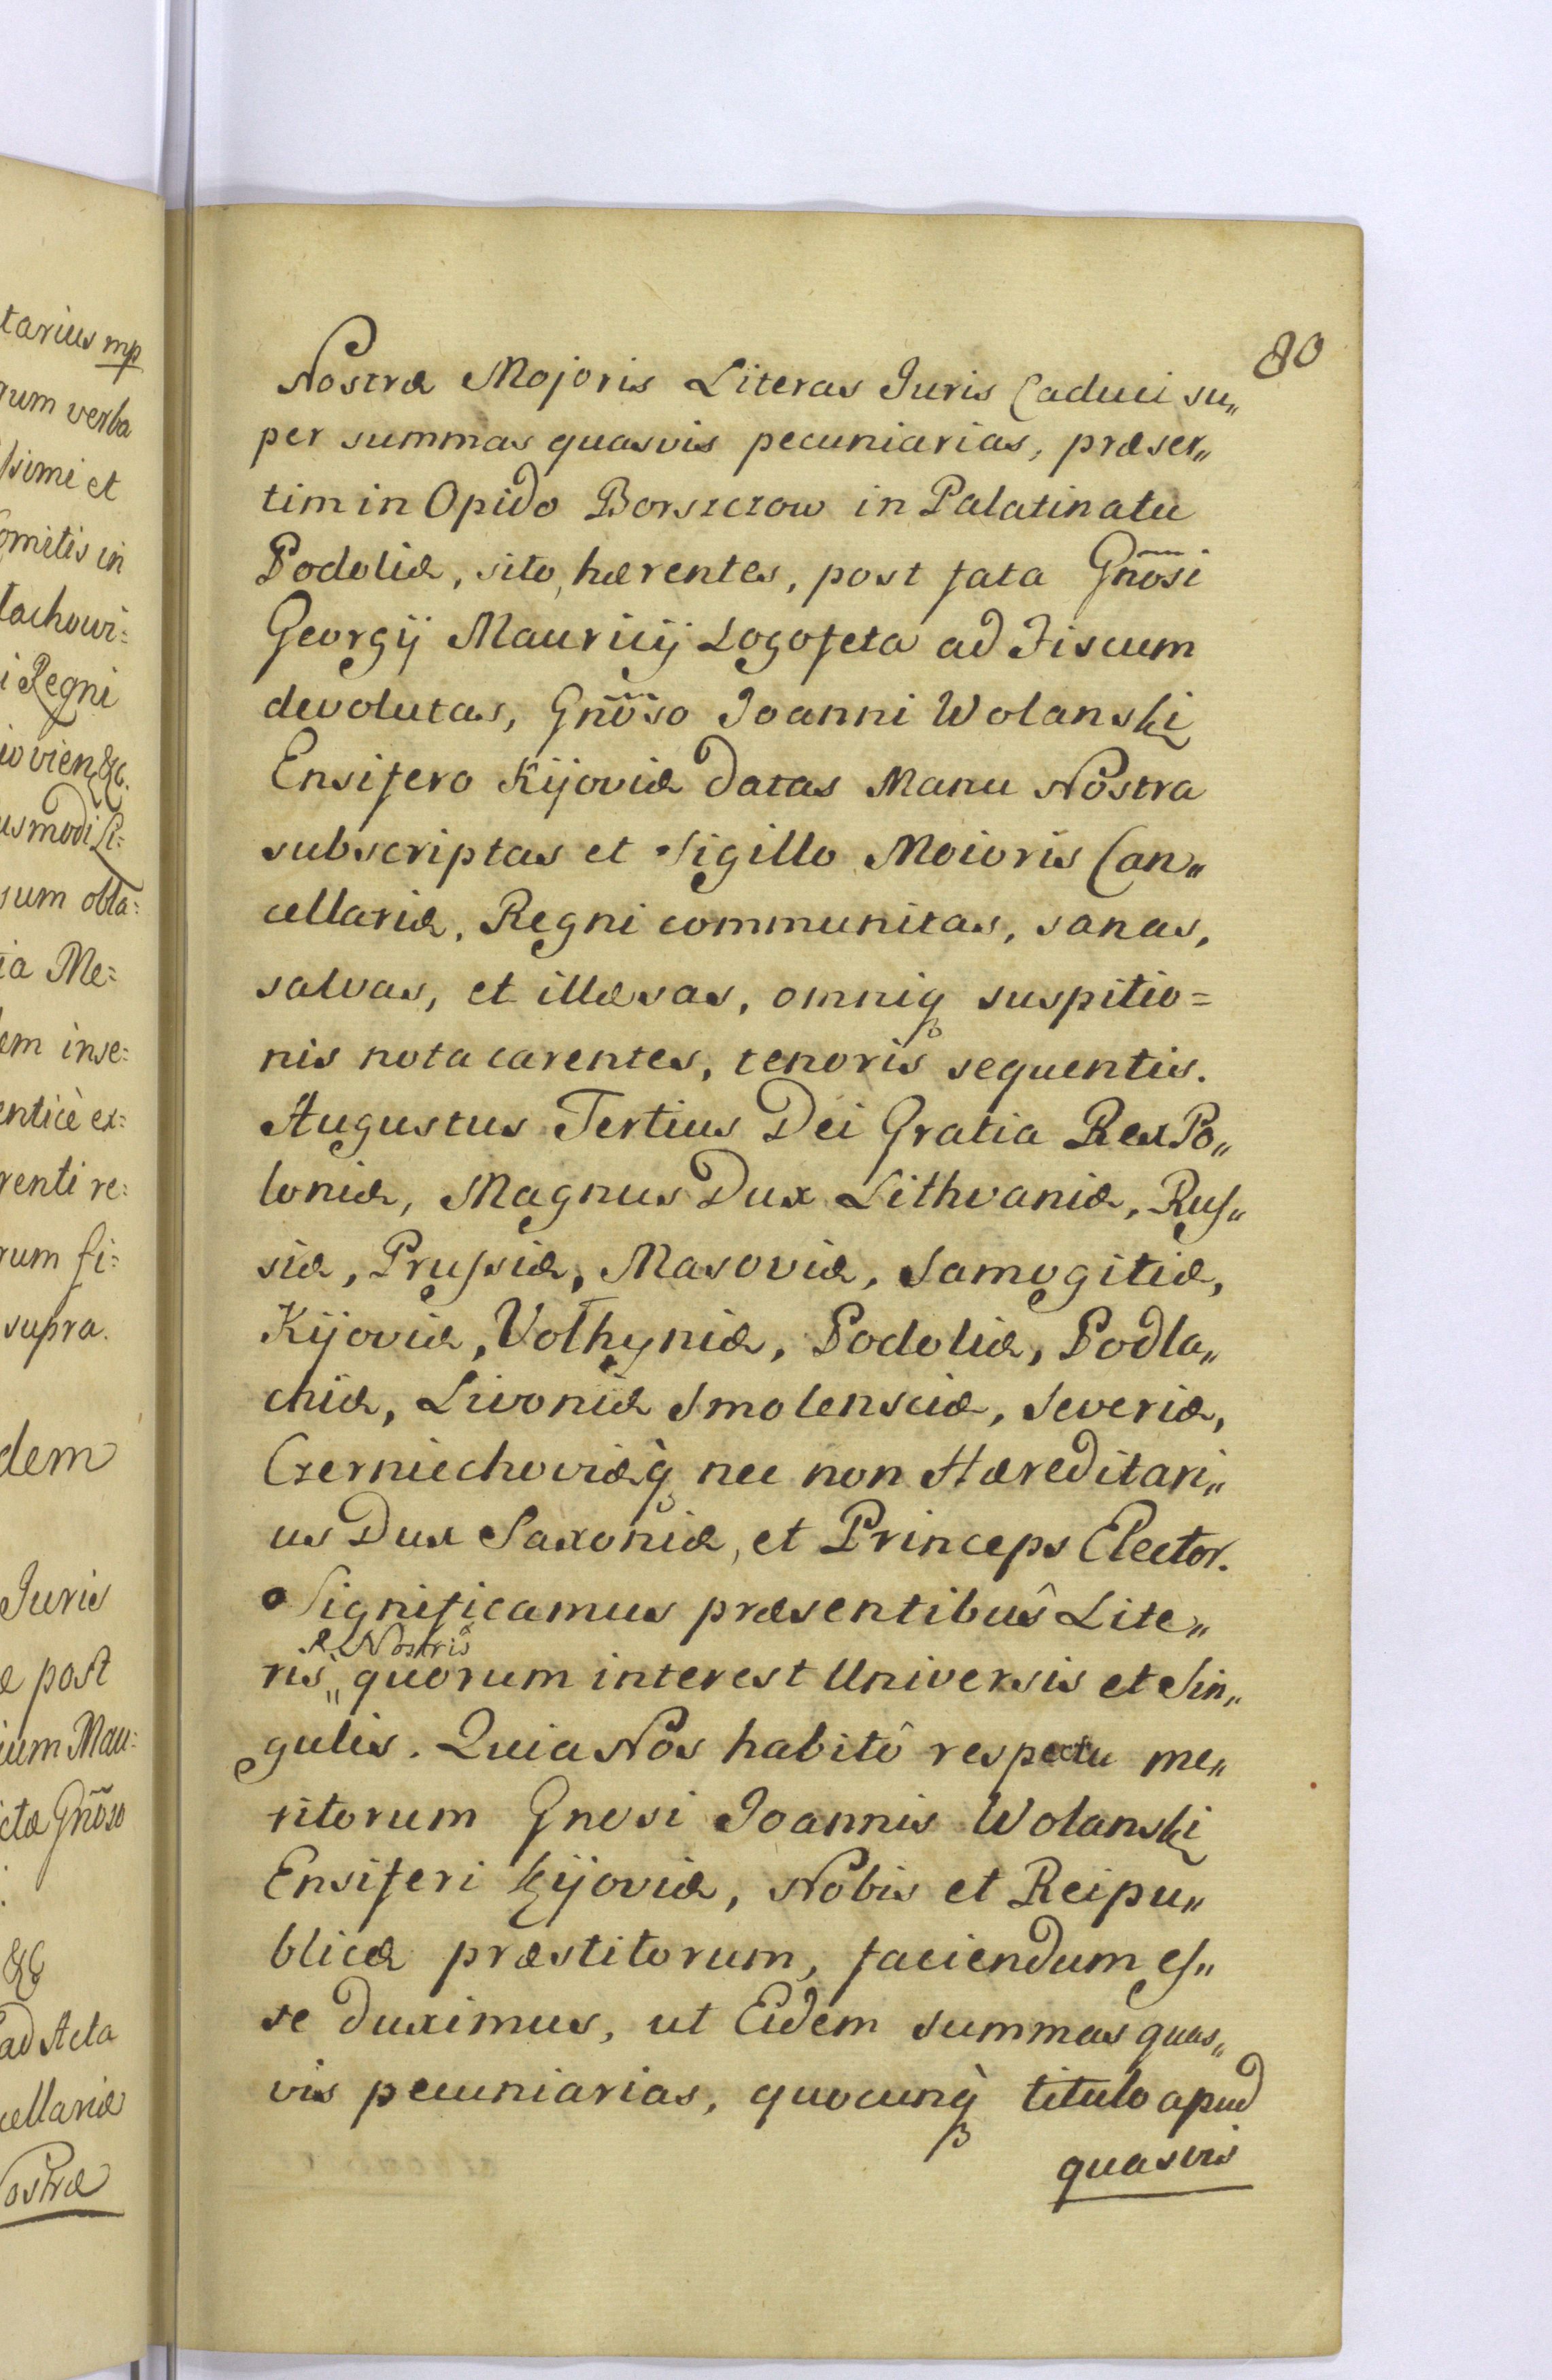 tarius mp
rum verba
ssimi et
omitis in
tachowi=
i Regni
iovien &c.
usmodi Li=
sum obla=
ia Me=
dem inse=
enticè ex=
renti re=
rum fi=
supra.
dem
Juris
æ post
ium Mau=
ctæ Gnõso
&c
ad Acta
cellariæ
Nostræ
80
Nostræ Majoris Literas Juris Caduci su„
per summas quasvis pecuniarias, præser„
tim in Opido Borszczow in Palatinatu
Podoliæ, sito, hærentes, post fata Gnõsi
Georgij Mauricij Logofeta ad Fiscum
devolutas, Gnõso Joanni Wolanski
Ensifero Kijoviæ datas Manu Nostra
subscriptas et Sigillo Moioris Can„
cellariæ, Regni communitas, sanas,
salvas, et illæsas, omniq₃ suspitio=
nis nota carentes, tenoris sequentis.
Augustus Tertius Dei Gratia Rex Po„
loniæ, Magnus Dux Lithvaniæ, Rus„
siæ, Prussiæ, Masoviæ, Samogitiæ,
Kijoviæ, Volhyniæ, Podoliæ, Podla„
chiæ, Livoniæ Smolensciæ, Severiæ,
Czerniechoviæq̀₃ nec non Hæreditari„
us Dux Saxoniæ, et Princeps Elector.
Significamus præsentibus̑ Lite„
ris„ Nostris quorum interest Universis et Sin„
gulis. Quia Nos habitô respectu me„
ritorum Gnosi Joannis Wolanski
Ensiferi Kijoviæ, Nobis et Reipu„
blicæ præstitorum, faciendum es„
se duximus, ut Eidem summas quas„
vis pecuniarias, quocunq̀₃ titulo apud
quasvis